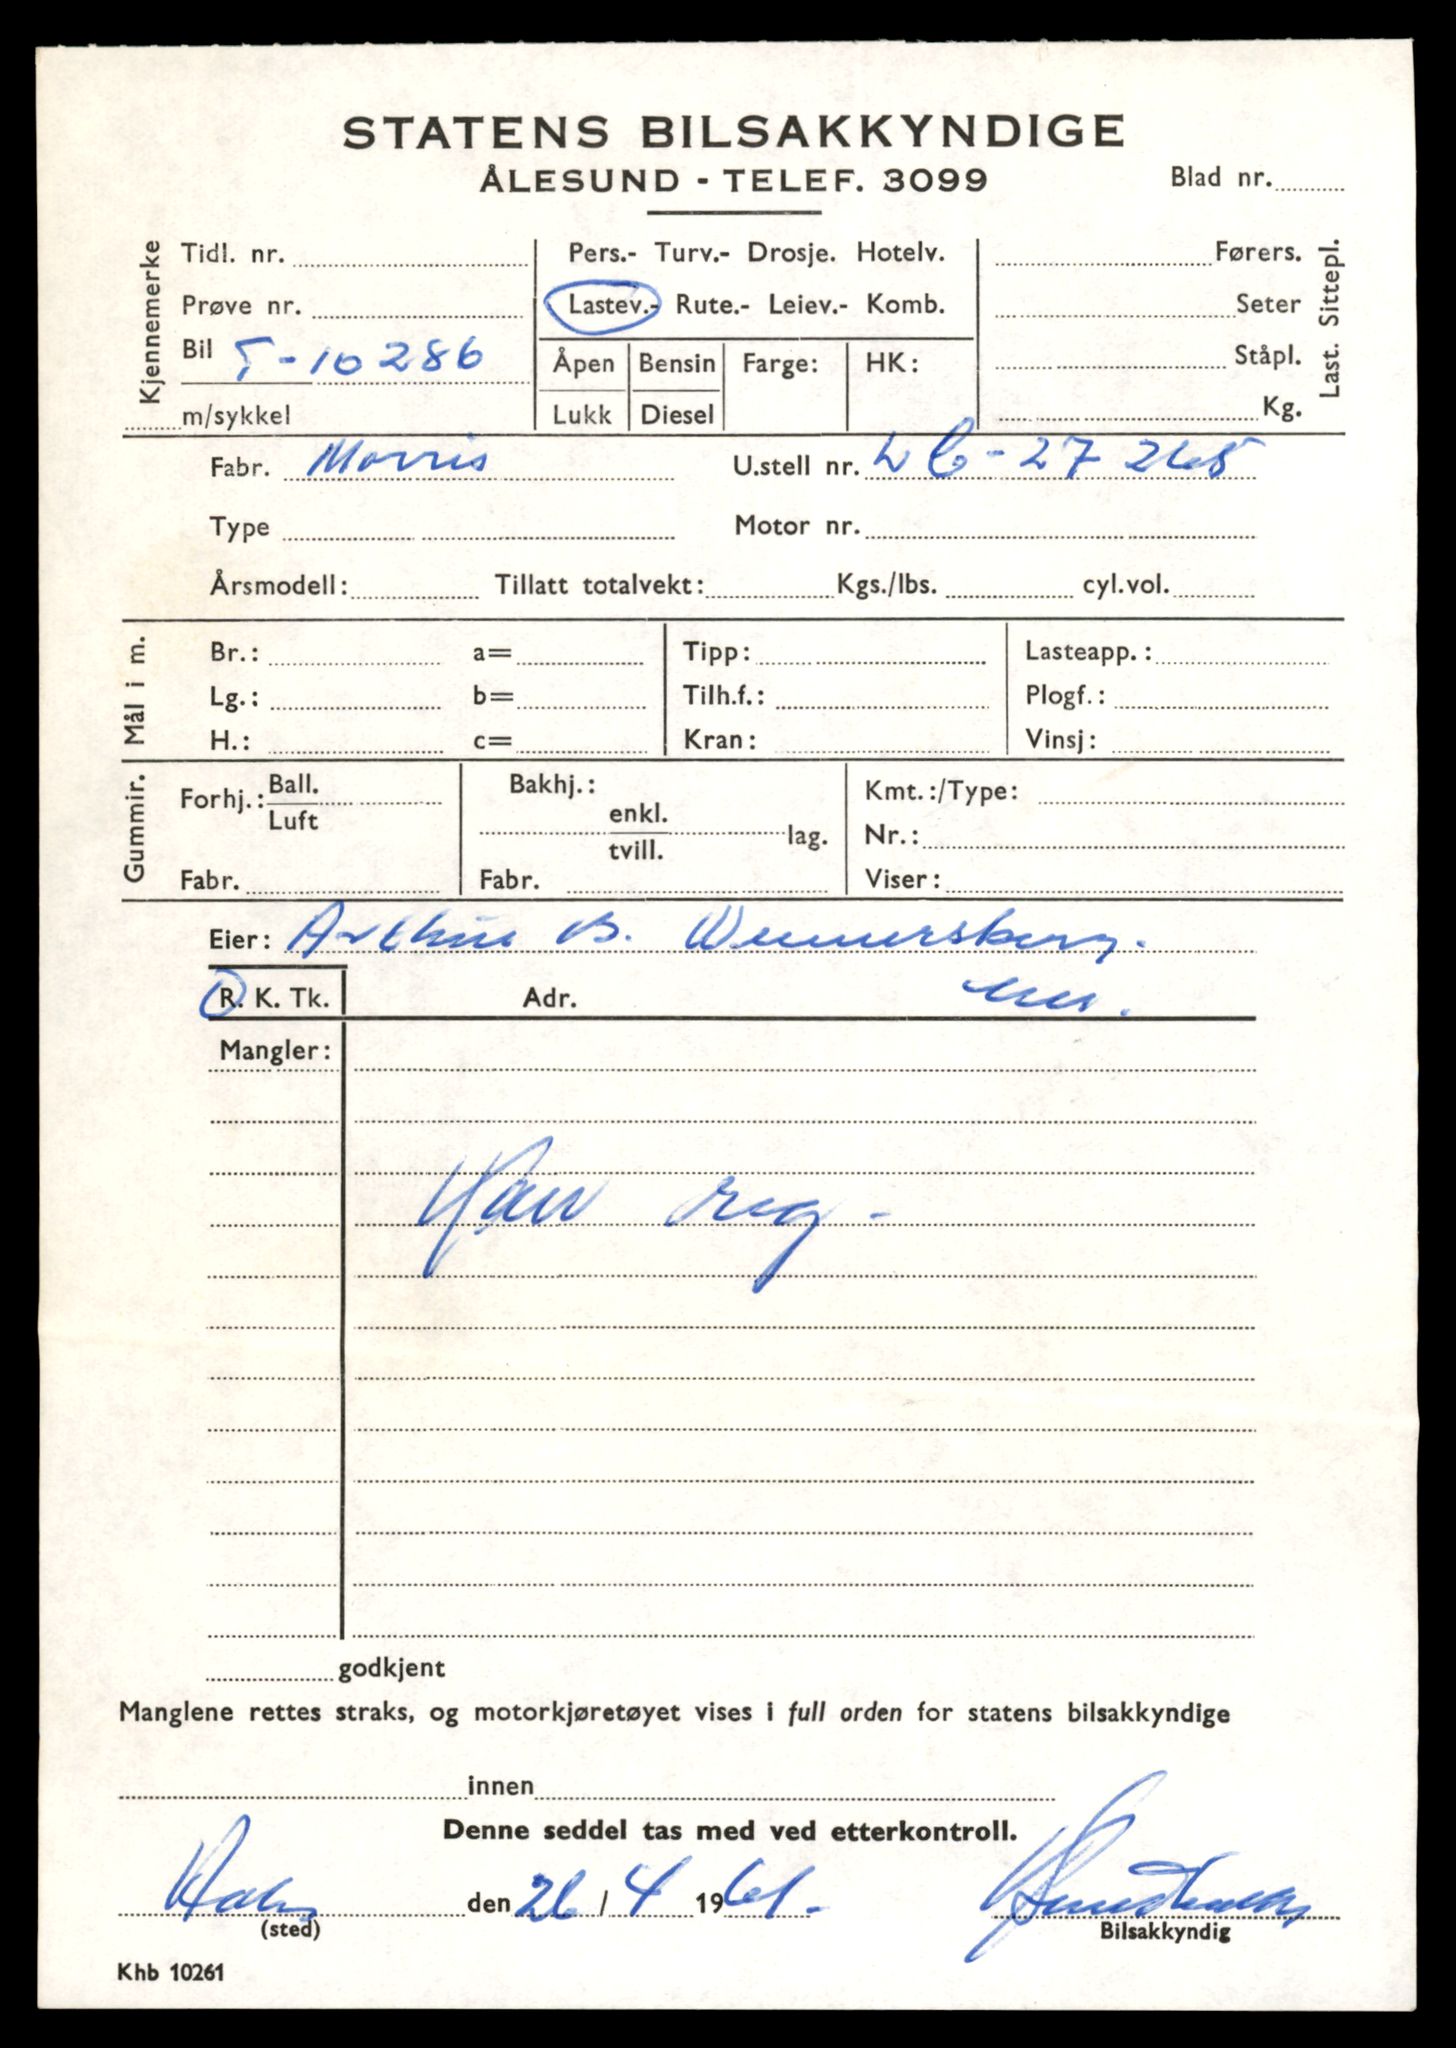 STATENS BILSAKKYNDIGE
ÅLESUND - TELEF. 3099
Blad nr.
Kjennemerke
Tidl. nr.
Prøve nr.
Bil T-10286
m/sykkel
Pers.- Turv.- Drosje. Hotelv.
Lastev.- Rute.- Leiev.- Komb.
Åpen Bensin Farge: HK:
Lukk Diesel
Førers.
Seter
Ståpl.
Kg.
Last. Sittepl.
Fabr. Morris U.stell nr. LC-27265
Type Motor nr.
Årsmodell: Tillatt totalvekt: Kgs./lbs. cyl.vol.
Mål i m.
Br.: a= Tipp: Lasteapp.:
Lg.: b= Tilh.f.: Plogf.:
H.: c= Kran: Vinsj:
Gummir.
Forhj.: Ball. Luft
Fabr.
Bakhj.:
enkl.
tvill. lag.
Fabr.
Kmt.:/Type:
Nr.:
Viser:
Eier: Arthur B.
R. K. Tk. Adr.
Mangler:
Kan reg -
godkjent
Manglene rettes straks, og motorkjøretøyet vises i full orden for statens bilsakkyndige
innen
Denne seddel tas med ved etterkontroll.
den 26/4 1961.
(sted) Bilsakkyndig
Khb 10261